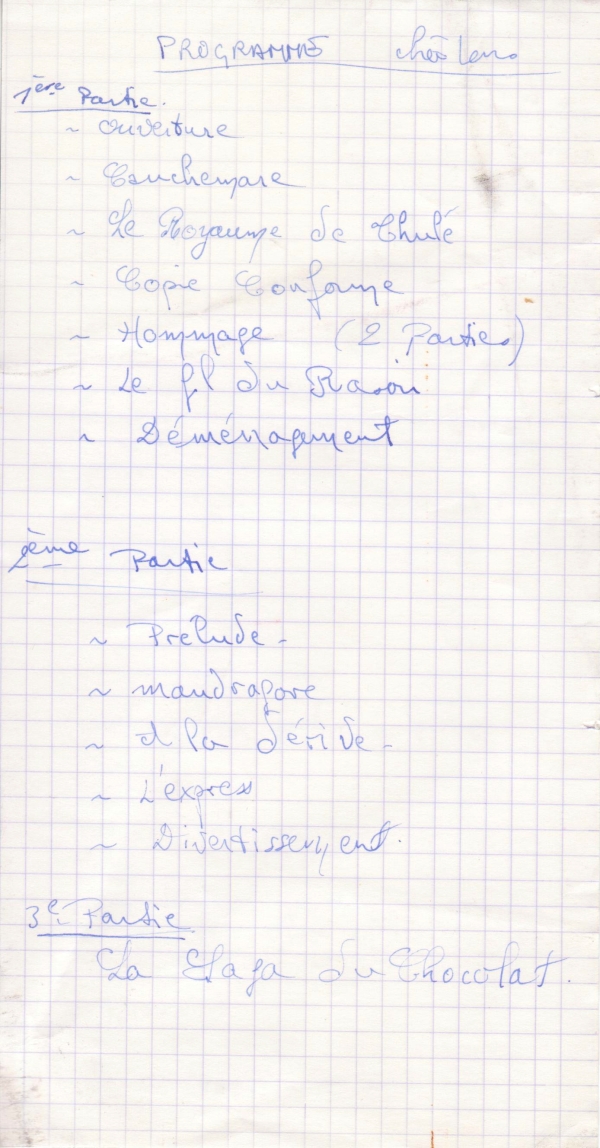 PROGRAMME
1ère Partie.
~ Ouverture
~ Cauchemare
~ Le Royaume de Thulé
~ Copie Conforme
~ Hommage (2 Parties)
~ Le fil du Rasoir
~ Déménagement
2ème Partie
~ Prélude -
~ mandragore
~ A la dérive -
~ L'express
~ Divertissement.
3e Partie
La Saga du Chocolat.